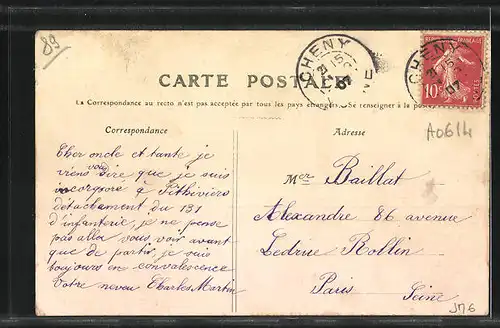 89
CHENY
21 15
07
CHENY
21 15
07
RÉPUBLIQUE FRANÇAISE
10c
POSTES
CARTE POSTALE
La Correspondance au recto n'est pas acceptée par tous les pays étrangers. Se renseigner à la poste
Correspondance
Cher oncle et tante je
viens vous dire que je suis
incorporé à Pithiviers
détachement du 131
d'infanterie, je ne pense
pas aller vous voir avant
que de partir, je suis
toujours en convalescence
Votre neveu Charles Martin
Adresse
Mer Baillat
Alexandre 86 avenue
Ledrue Rollin
Paris
Seine
A0614
J76